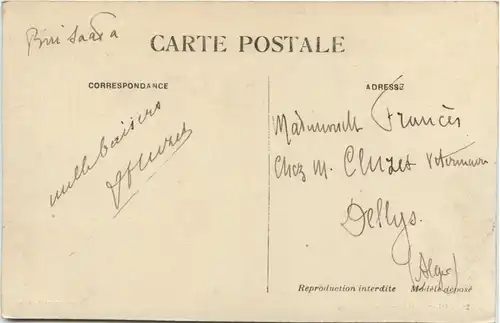 Bou Saada
CARTE POSTALE
CORRESPONDANCE
mille baisers
ADRESSE
Mademoiselle Francès
Chez M. Cluzet
Dellys.
(Alger)
Reproduction interdite Modèle déposé